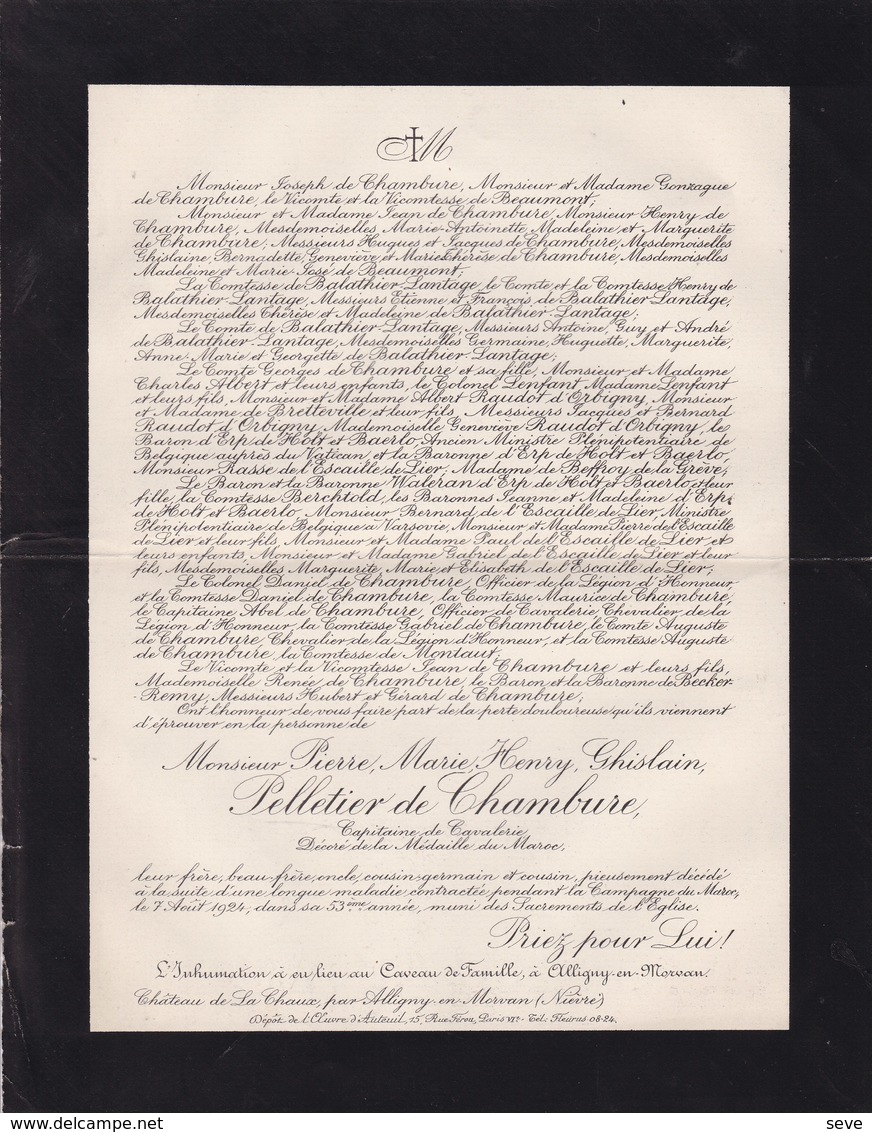 M
Monsieur Joseph de Chambure, Monsieur et Madame Gonzague
de Chambure, le Vicomte et la Vicomtesse de Beaumont;
Monsieur et Madame Jean de Chambure, Monsieur Henry de
Chambure, Mesdemoiselles Marie-Antoinette, Madeleine et Marguerite
de Chambure, Messieurs Hugues et Jacques de Chambure, Mesdemoiselles
Ghislaine, Bernadette, Geneviève et Marie Thérèse de Chambure, Mesdemoiselles
Madeleine et Marie-José de Beaumont;
La Comtesse de Balathier-Lantage, le Comte et la Comtesse Henry de
Balathier-Lantage, Messieurs Etienne et François de Balathier-Lantage,
Mesdemoiselles Thérèse et Madeleine de Balathier-Lantage;
Le Comte de Balathier-Lantage, Messieurs Antoine, Guy et André
de Balathier-Lantage, Mesdemoiselles Germaine, Huguette, Marguerite,
Anne-Marie et Georgette de Balathier-Lantage;
Le Comte Georges de Chambure et sa fille, Monsieur et Madame
Charles Albert et leurs enfants, le Colonel Lenfant Madame Lenfant
et leurs fils, Monsieur et Madame Albert Raudot d'Orbigny, Monsieur
et Madame de Bretteville et leur fils, Messieurs Jacques et Bernard
Raudot d'Orbigny, Mademoiselle Geneviève Raudot d'Orbigny, le
Baron d'Erp de Holt et Baerlo, Ancien Ministre Plénipotentiaire de
Belgique auprès du Vatican et la Baronne d'Erp de Holt et Baerlo,
Monsieur Rasse de l'Escaille de Lier, Madame de Beffroy de la Grève;
Le Baron et la Baronne Waleran d'Erp de Holt et Baerlo et leur
fille, la Comtesse Berchtold, les Baronnes Jeanne et Madeleine d'Erp
de Holt et Baerlo, Monsieur Bernard de l'Escaille de Lier, Ministre
Plénipotentiaire de Belgique à Varsovie, Monsieur et Madame Pierre de l'Escaille
de Lier et leur fils, Monsieur et Madame Paul de l'Escaille de Lier et
leurs enfants, Monsieur et Madame Gabriel de l'Escaille de Lier et leur
fils, Mesdemoiselles Marguerite, Marie et Elisabeth de l'Escaille de Lier;
Le Colonel Daniel de Chambure, Officier de la Légion d'Honneur,
et la Comtesse Daniel de Chambure, la Comtesse Maurice de Chambure,
le Capitaine Abel de Chambure, Officier de Cavalerie, Chevalier de la
Légion d'Honneur, la Comtesse Gabriel de Chambure, le Comte Auguste
de Chambure, Chevalier de la Légion d'Honneur, et la Comtesse Auguste
de Chambure, la Comtesse de Montaut;
Le Vicomte et la Vicomtesse Jean de Chambure et leurs fils,
Mademoiselle Renée de Chambure, le Baron et la Baronne de Becker-
-Remy, Messieurs Hubert et Gérard de Chambure;
Ont l'honneur de vous faire part de la perte douloureuse qu'ils viennent
d'éprouver en la personne de
Monsieur Pierre, Marie, Henry, Ghislain,
Pelletier de Chambure,
Capitaine de Cavalerie,
Décoré de la Médaille du Maroc,
leur frère, beau-frère, oncle, cousin-germain et cousin, pieusement décédé
à la suite d'une longue maladie contractée pendant la Campagne du Maroc,
le 7 Août 1924, dans sa 53ème année, muni des Sacrements de l'Eglise.
Priez pour Lui!
L'Inhumation a eu lieu au Caveau de Famille, à Alligny-en-Morvan.
Château de La Chaux, par Alligny-en-Morvan (Nièvre)
Dépôt de l'Œuvre d'Auteuil, 15, Rue Férou, Paris VIe - Tél: Fleurus 08-24.
delcampe.net
seve